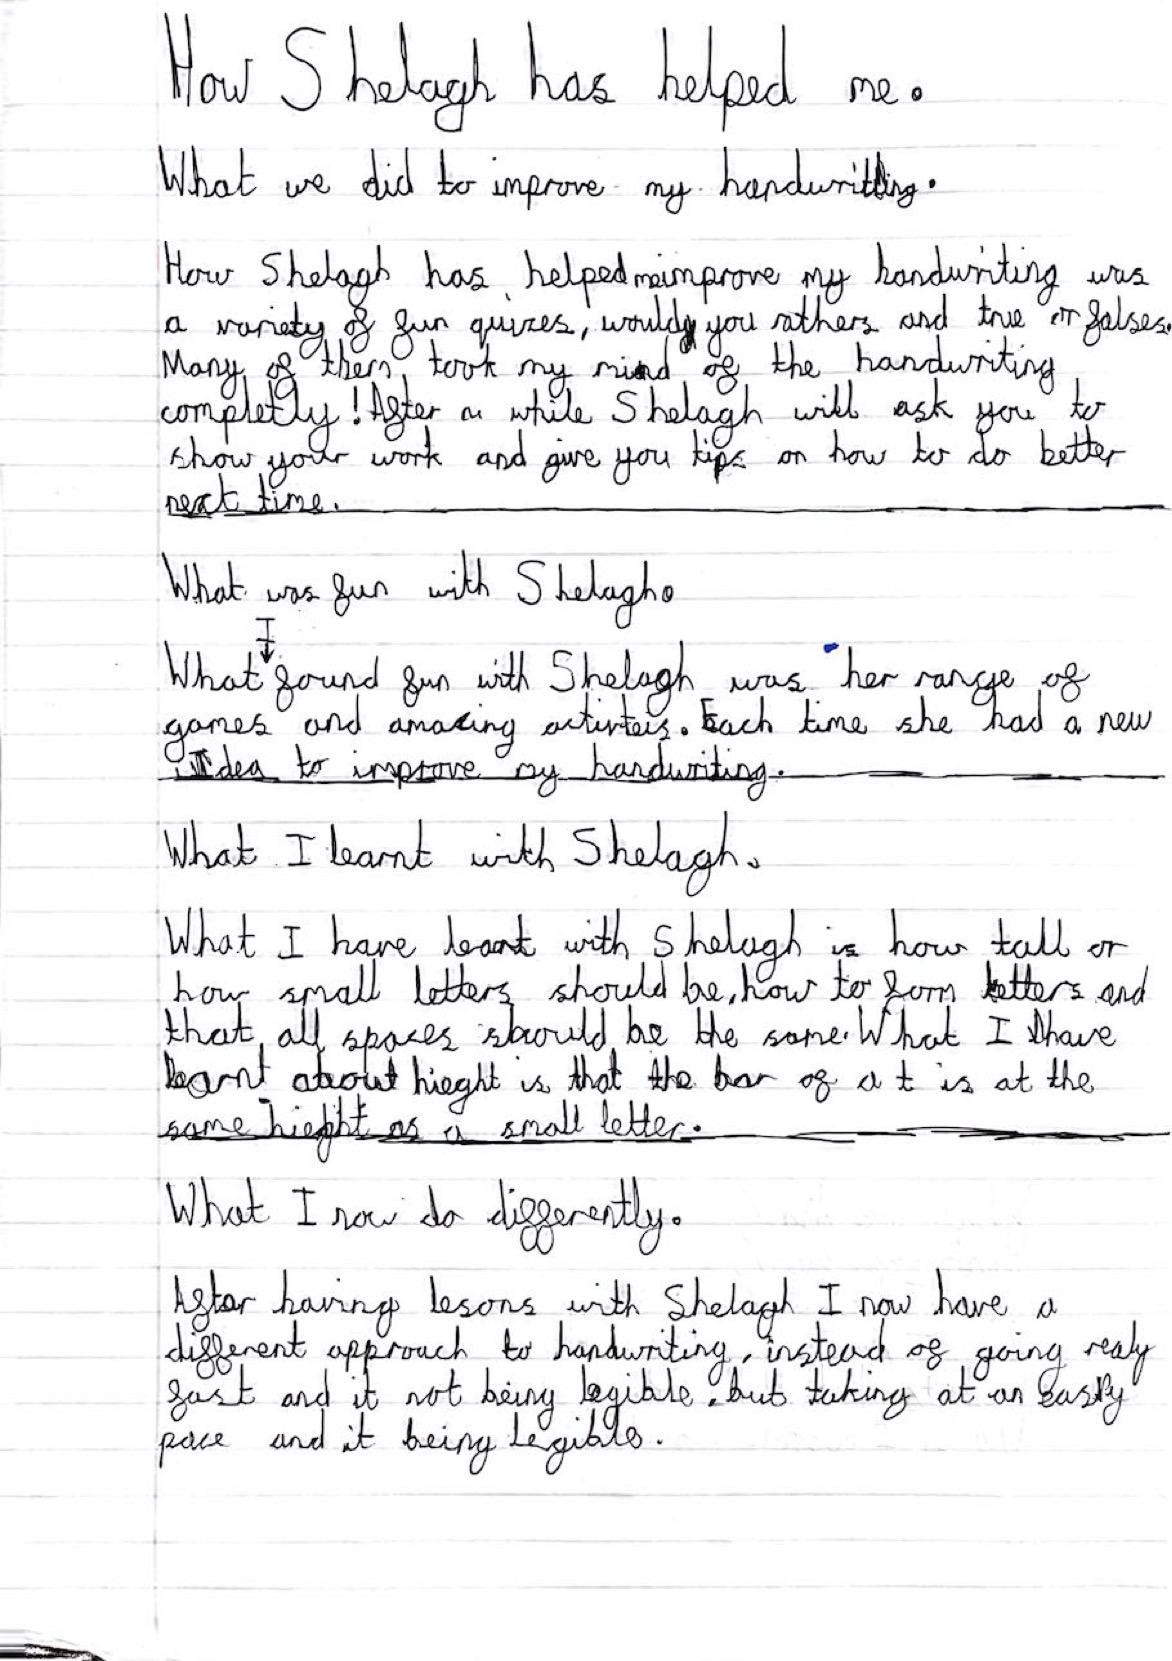 How Shelagh has helped me.
What we did to improve my handwriting.
How Shelagh has helped me improve my handwriting was
a variety of fun quizes, would you rathers and true or falses.
Many of them took my mind of the handwriting
completly! After a while Shelagh will ask you to
show your work and give you tips on how to do better
next time.
What was fun with Shelagh.
I
What found fun with Shelagh was her range of
games and amazing activiteis. Each time she had a new
idea to improve my handwriting.
What I learnt with Shelagh.
What I have learnt with Shelagh is how tall or
how small letters should be, how to form letters and
that all spaces should be the same. What I have
learnt about hieght is that the bar of a t is at the
same hieght as a small letter.
What I now do differently.
After having lesons with Shelagh I now have a
different approach to handwriting, instead of going realy
fast and it not being legible, but taking at an easy
pace and it being legible.